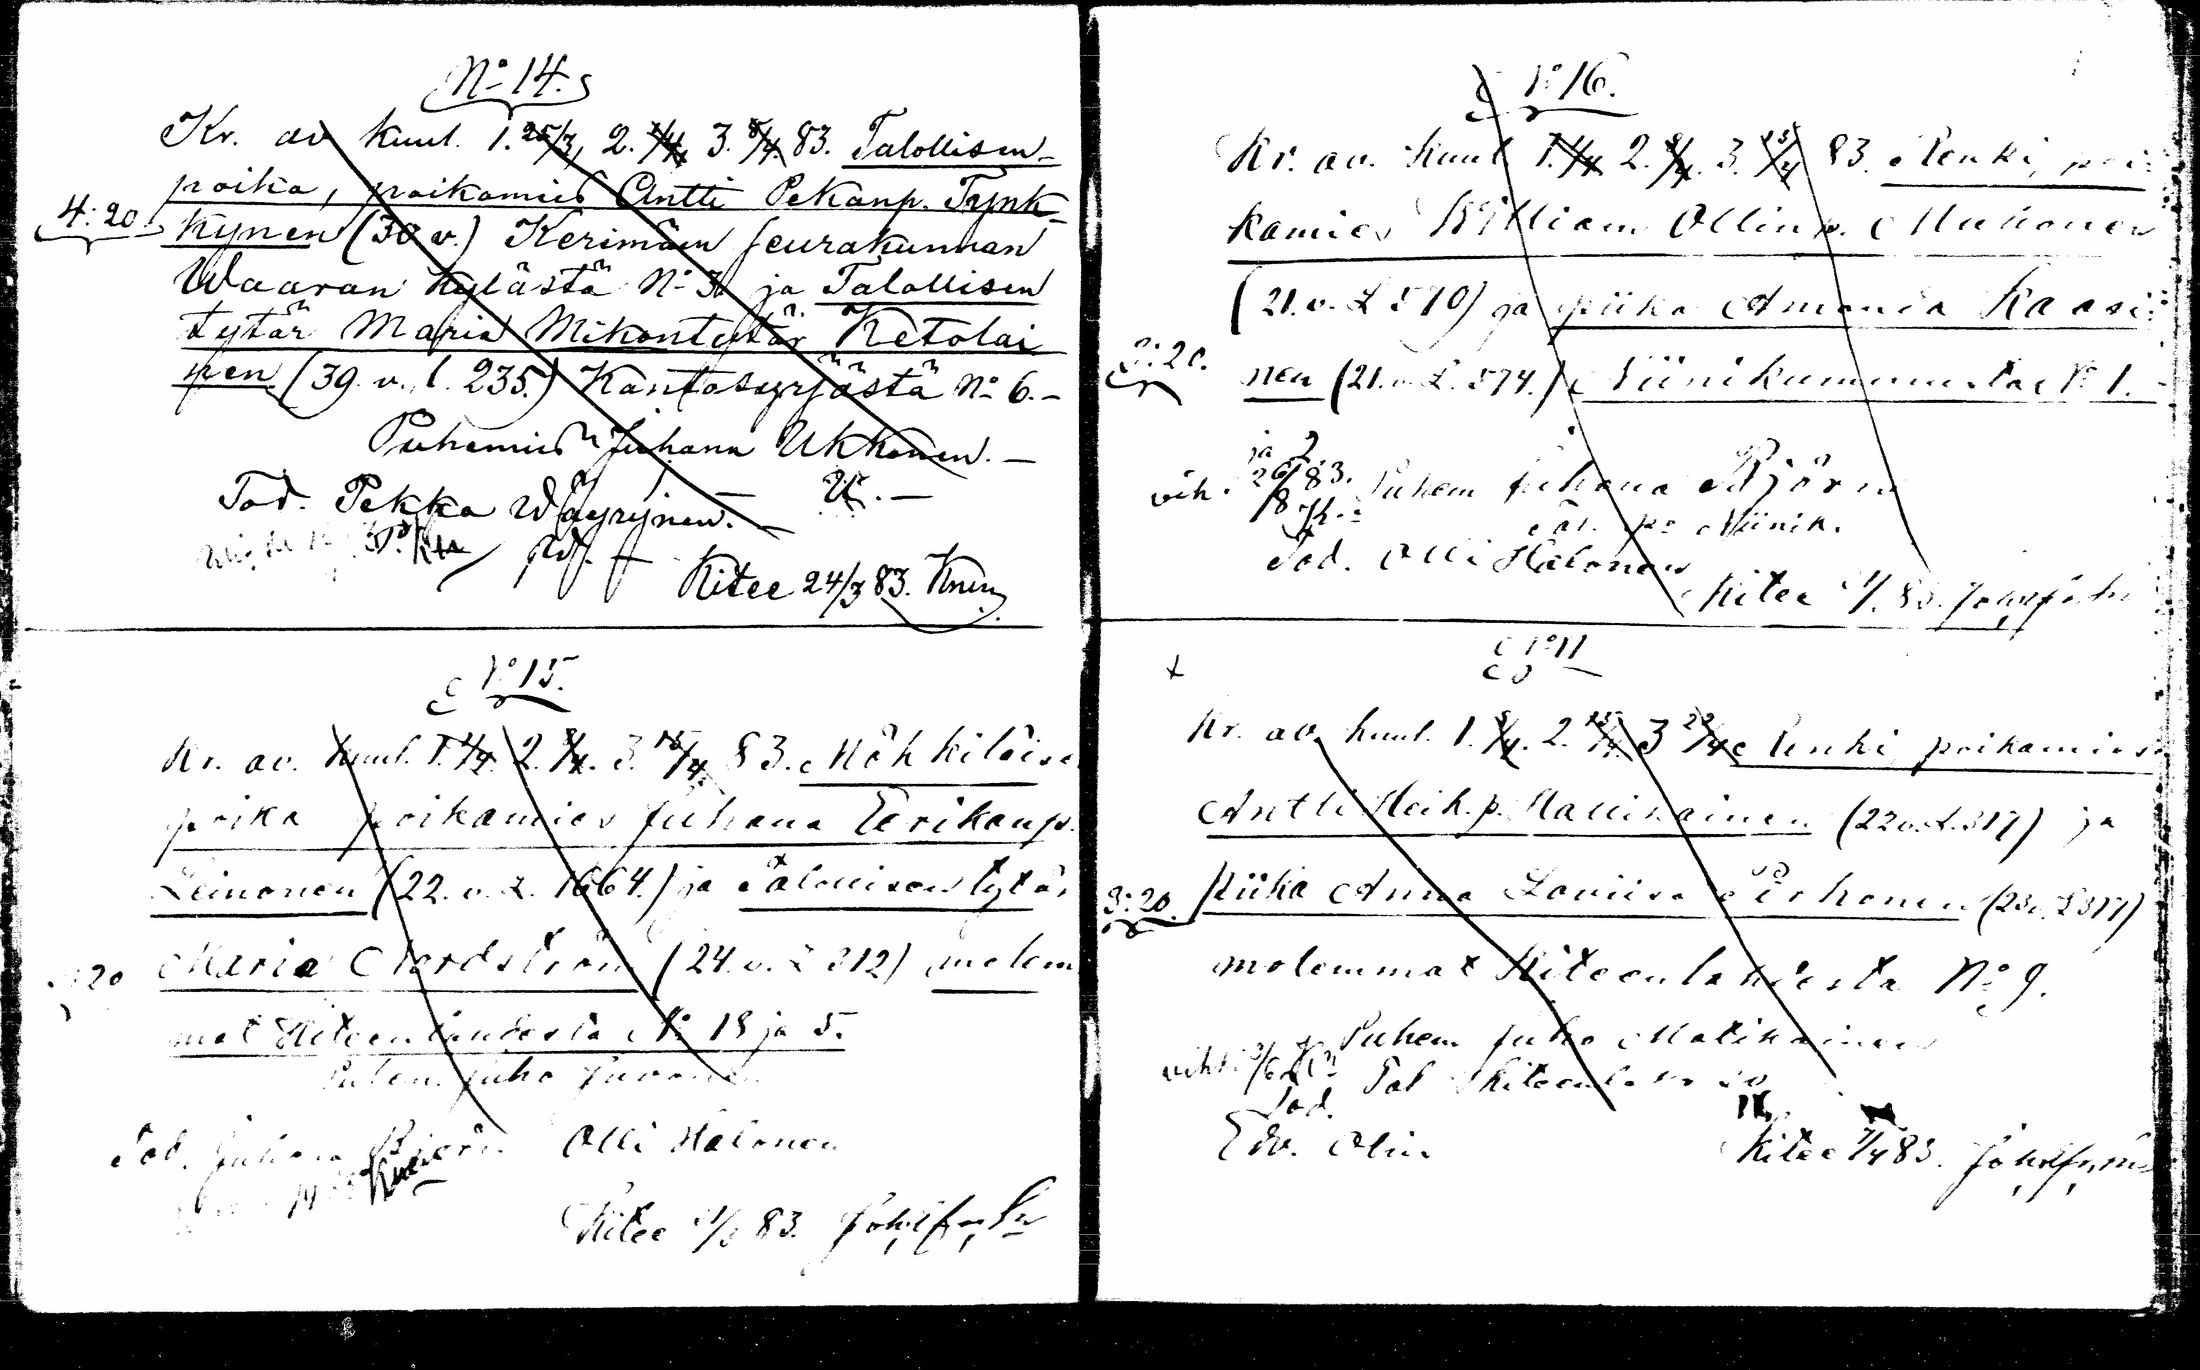 No 14.
Kr. av. kuul. 1. 25/3, 2. 1/4, 3. 8/4 83. Talollisen-
poika, poikamies Antti Pekanp. Tynk-
4:20. kynen (30 v.) Kerimäen seurakunnan
Waaran kylästä No 3 ja Talollisen
tytär Maria Mikontytär Ketolai
nen (39. v., l. 235.) Kantosyrjästä No 6.-
Puhemies Juhana Ukkonen. -
Tod. Pekka Wäyrynen. -
Kitee 24/3 83.
No 15.
Kr. av. kuul. 1. 1/4. 2. 8/4. 3. 15/4 83. Mäkkiläise
poika poikamies Juhana Eerikanp.
Leinonen (22. v. L. 1664.) ja Talollisen tytär
20 Maria Nordström (24. v. L 312) molem
mat Kiteenlahdesta No 18 ja 5.
Puhem. Juho Juvonen
Tod. Juhana Björn Olli Halonen
Kitee 83.
No 16.
Kr. av. kuul 1. 1/4 2. 8/4. 3. 15/4 83. Renki, poi-
kamies William Ollinp. Muhonen
(21. v. L 570) ja piika Amanda Kaasi-
3:20. nen (21. v. L. 574.) Niinikummusta No 1.
vih. Puhem Juhana Björn
Tal. po Niinik.
Tod. Olli Halonen
Kitee 83.
No 17
Kr. av. kuul. 1. 8/4. 2. 15/4. 3 22/4 Renki, poikamies
Antti Heik.p. Mallikainen (22 v. L. 317) ja
3:20. Piika Anna Loviisa Sirkonen (23 v. L 317)
molemmat Kiteenlahdesta No 9.
Puhem Juho Matikainen
Tal Kiteenlahti
Tod.
Edv. Olin
Kitee 7/4 83.